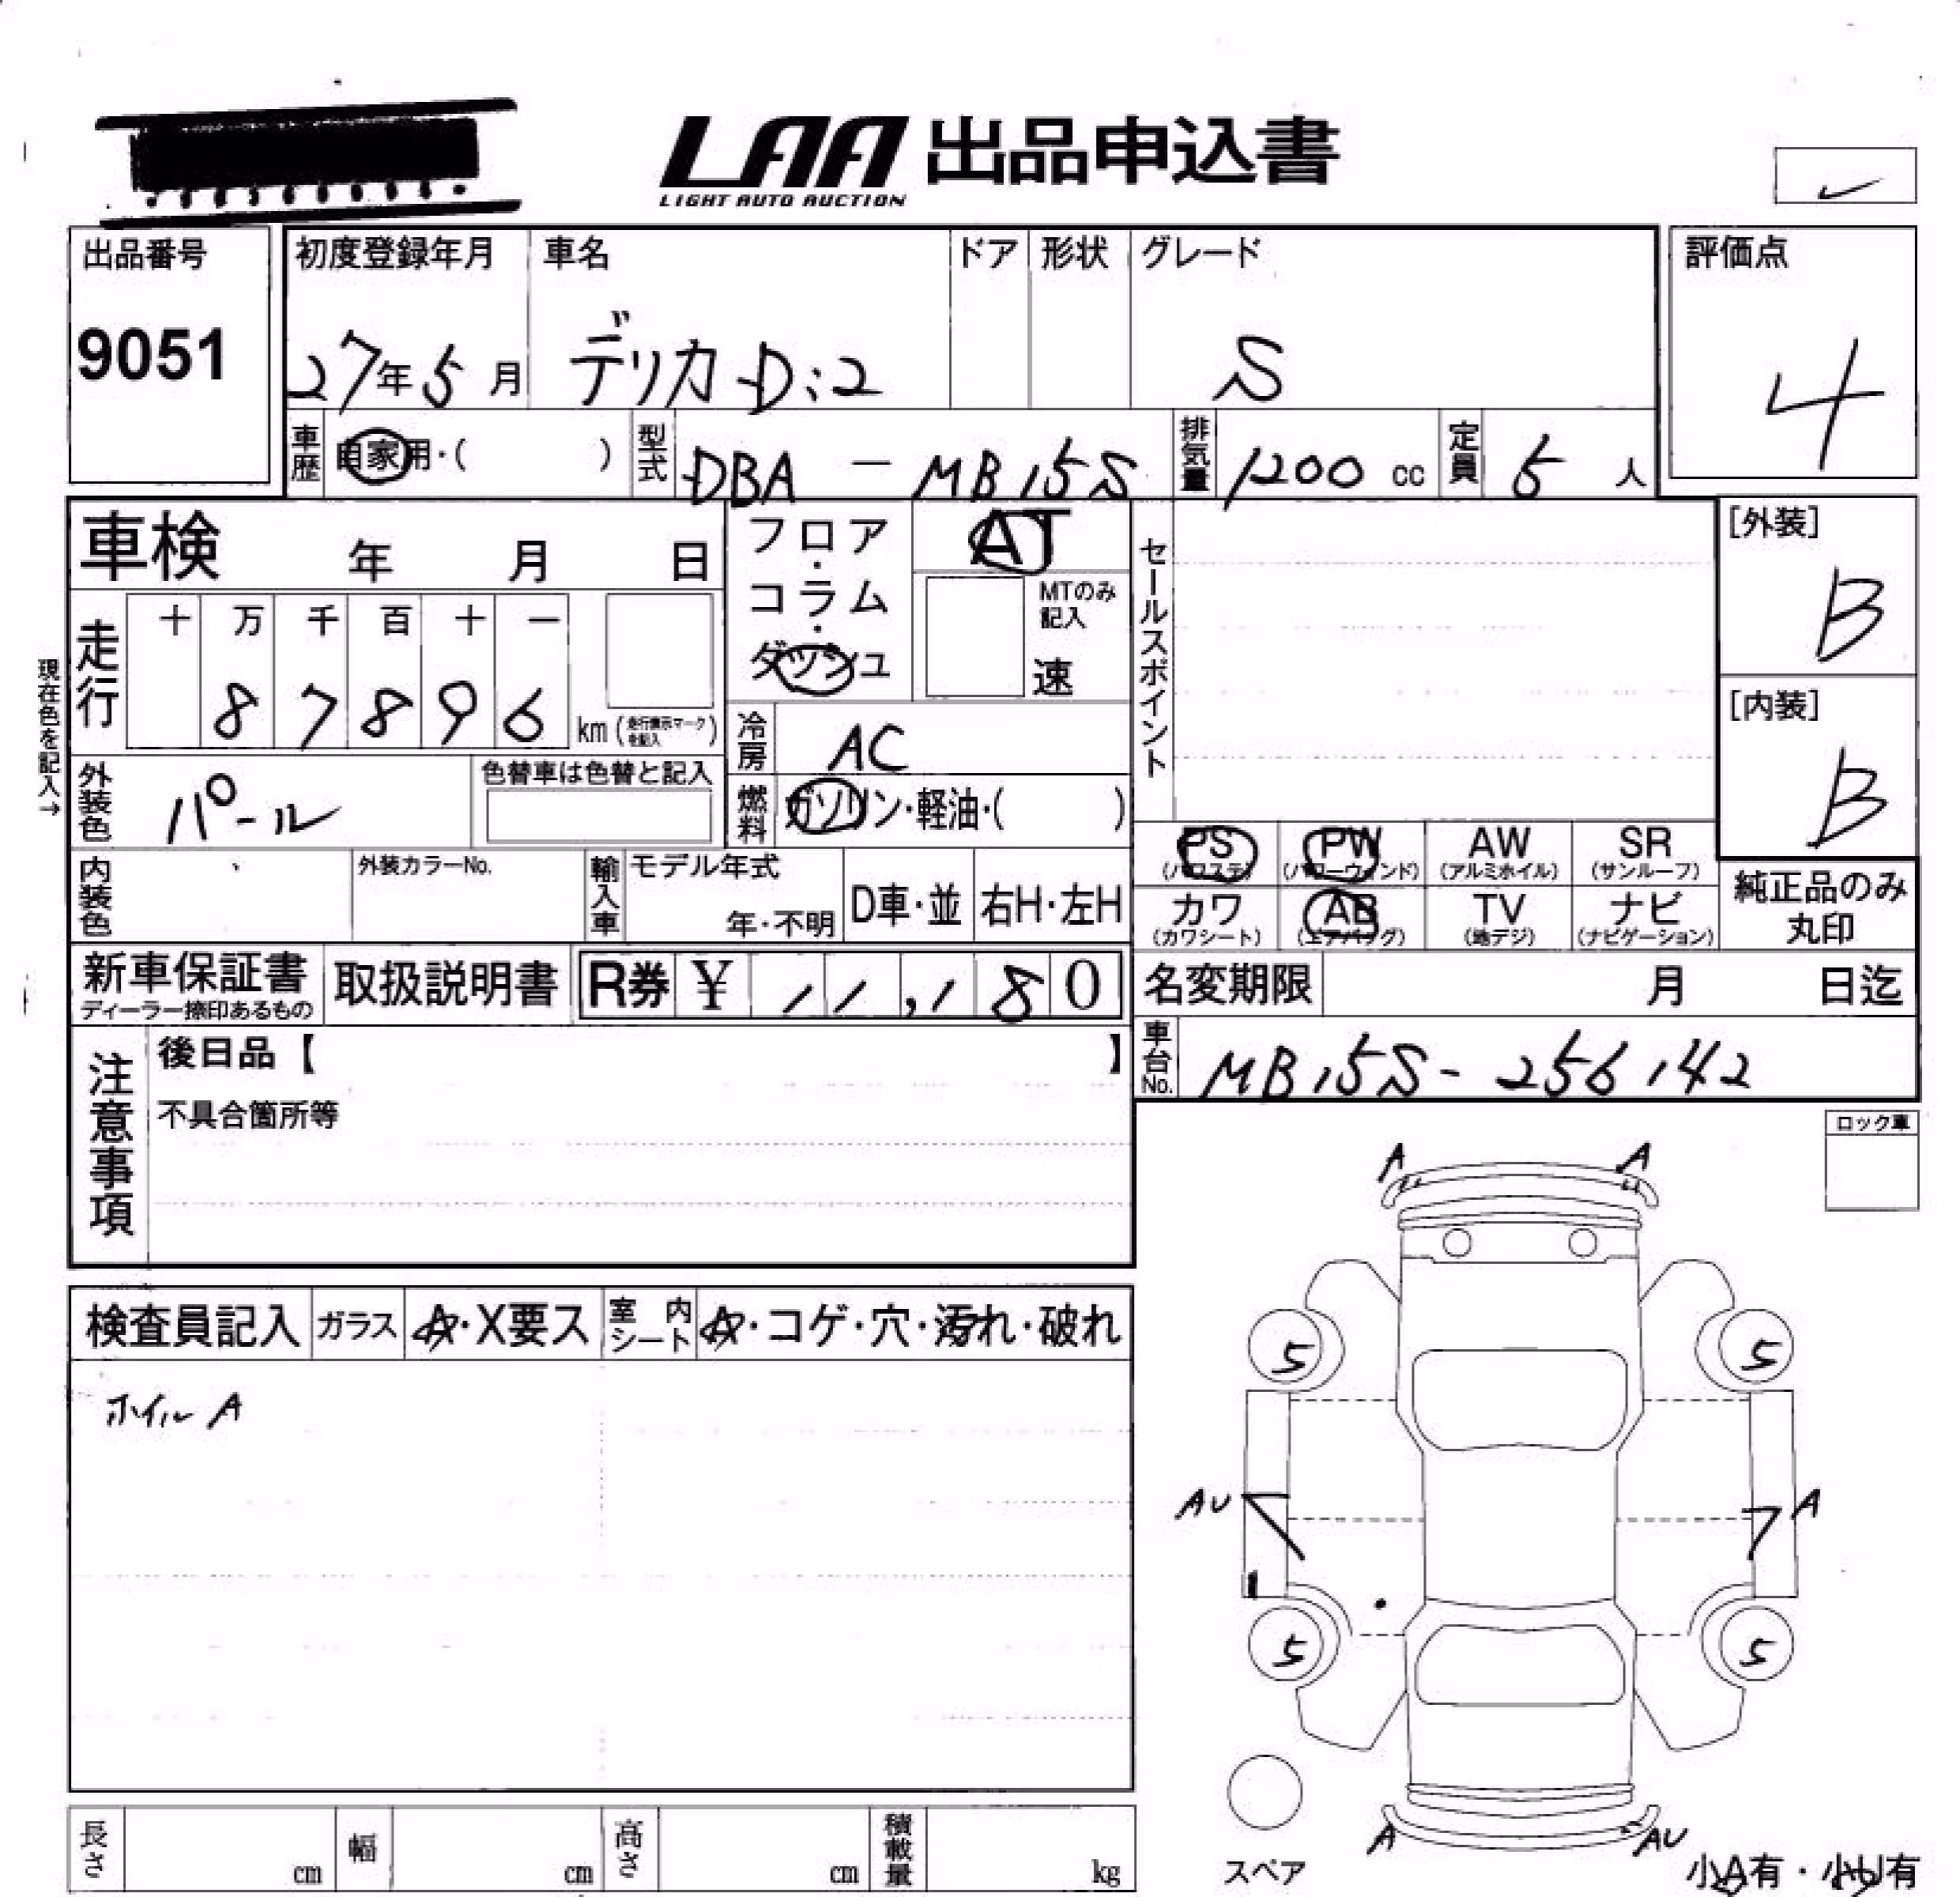 LAA 出品申込書
LIGHT AUTO AUCTION
出品番号
9051
初度登録年月 車名 ドア 形状 グレード
27年5月 デリカD:2 S
評価点
4
車歴 自家用・( ) 型式 DBA - MB15S 排気量 1200 cc 定員 5 人
車検 年 月 日
フロア・コラム・ダッシュ
AT
MTのみ記入
速
セールスポイント
[外装]
B
[内装]
B
現在色を記入→
走行 十 万 千 百 十 一
87896 km (走行表示マークを記入)
冷房 AC
外装色 パール 色替車は色替と記入
燃料 ガソリン・軽油・( )
PS (パワステ) PW (パワーウィンド) AW (アルミホイル) SR (サンルーフ)
カワ (カワシート) AB (エアバッグ) TV (地デジ) ナビ (ナビゲーション)
純正品のみ
丸印
内装色 外装カラーNo. 輸入車 モデル年式
年・不明 D車・並 右H・左H
新車保証書 取扱説明書 R券 ¥ 11,180
ディーラー捺印あるもの
名変期限 月 日迄
車台No. MB15S-256142
注意事項
後日品【 】
不具合箇所等
ロック車
検査員記入 ガラス A・X要ス 室内シート A・コゲ・穴・汚れ・破れ
ホイル A
A A
5 5
AU A
5 5
A AU
スペア
小A有・小U有
長さ cm 幅 cm 高さ cm 積載量 kg